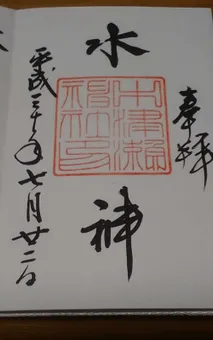 奉拝
水神
中津瀬
神社印
平成三十年七月廿二日